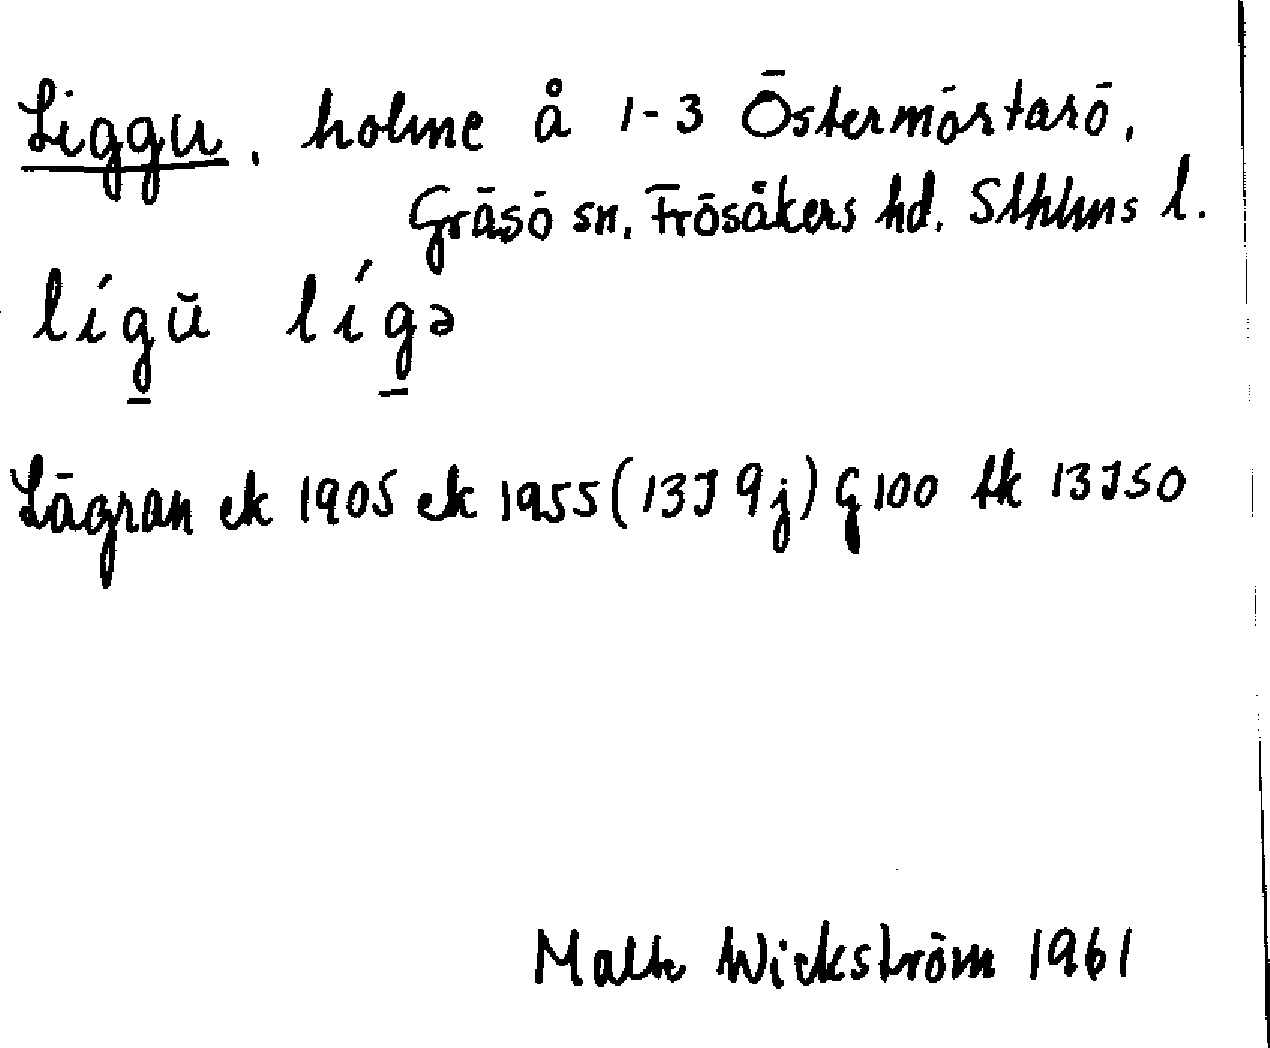 Liggu, holme å 1-3 Östermörtarö,
Gräsö sn, Frösåkers hd, Sthlms l.
lígŭ lígə
Lägran ek 1905 ek 1955 (13J 9j) G 100 tk 13J50
Malte Wickström 1961